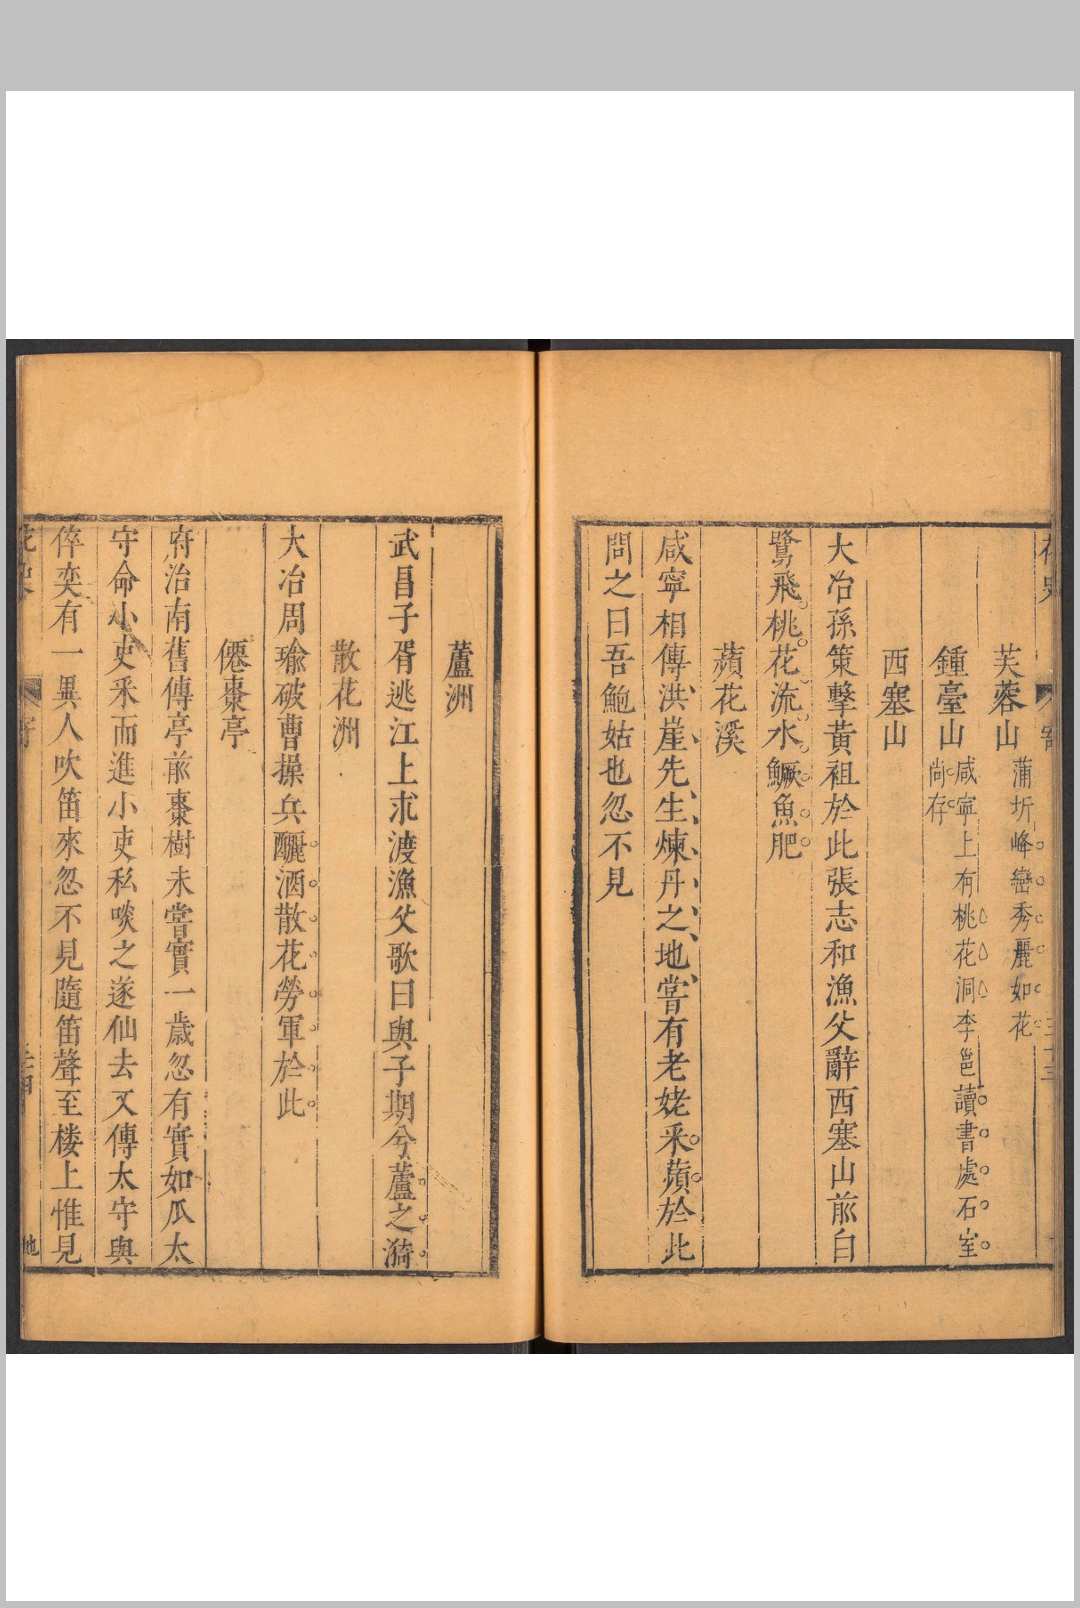 芙蓉山 蒲圻峰巒秀麗如花
鍾臺山 咸寧上有桃花洞李邕讀書處石室
尚存
西塞山
大冶孫策擊黃祖於此張志和漁父辭西塞山前白
鷺飛桃花流水鱖魚肥
蘋花溪
咸寧相傳洪崖先生煉丹之地嘗有老姥采蘋於此
問之曰吾鮑姑也忽不見
蘆洲
武昌子胥逃江上求渡漁父歌曰與子期兮蘆之漪
散花洲
大冶周瑜破曹操兵釃酒散花勞軍於此
僊棗亭
府治南舊傳亭前棗樹未嘗實一歲忽有實如瓜太
守命小吏采而進小吏私啖之遂仙去又傳太守與
倅奕有一異人吹笛來忽不見隨笛聲至楼上惟見